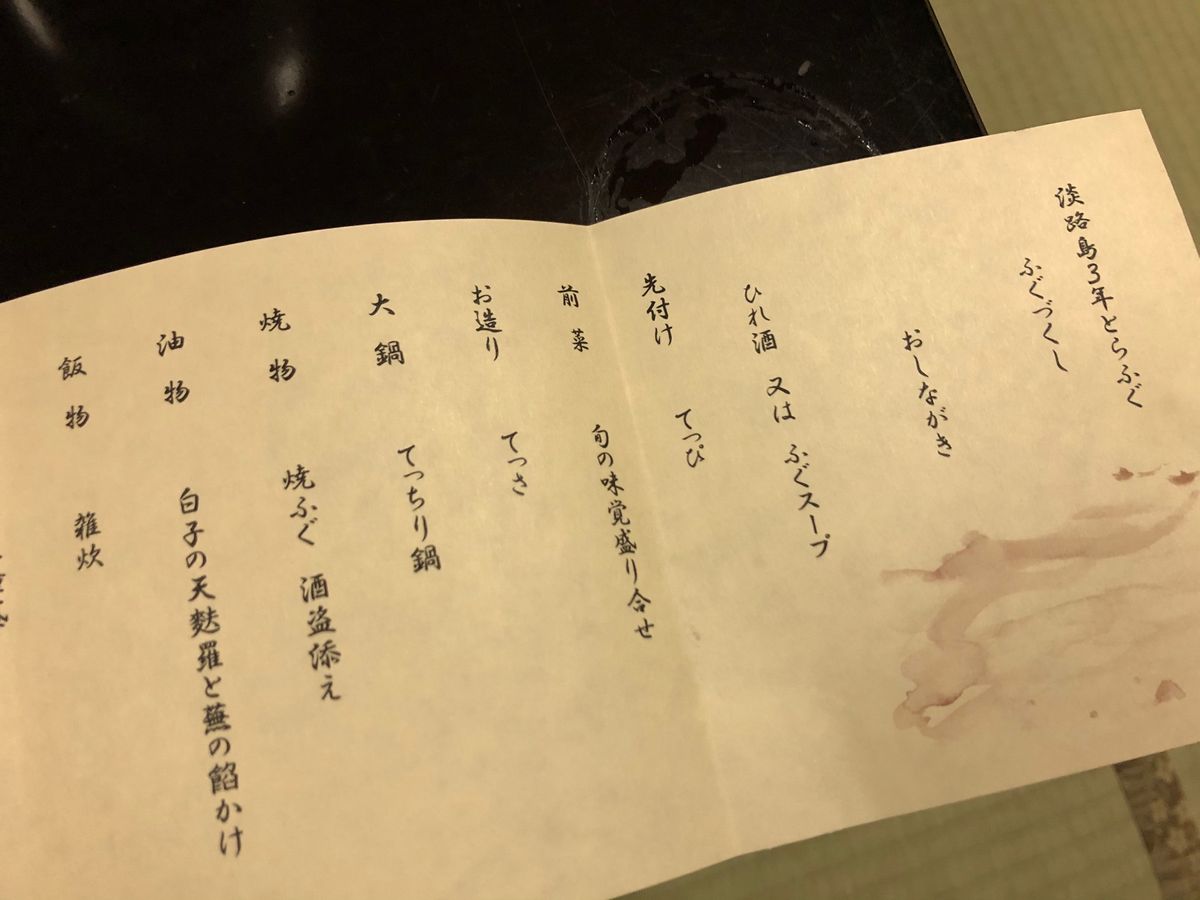 淡路島3年とらふぐ
ふぐづくし
おしながき
ひれ酒 又は ふぐスープ
先付け てっぴ
前菜 旬の味覚盛り合せ
お造り てっさ
大鍋 てっちり鍋
焼物 焼ふぐ 酒盗添え
油物 白子の天麩羅と蕪の餡かけ
飯物 雑炊